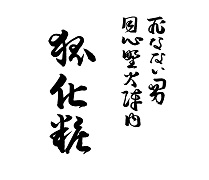 死なない男
同心野火陣内
狐化粧